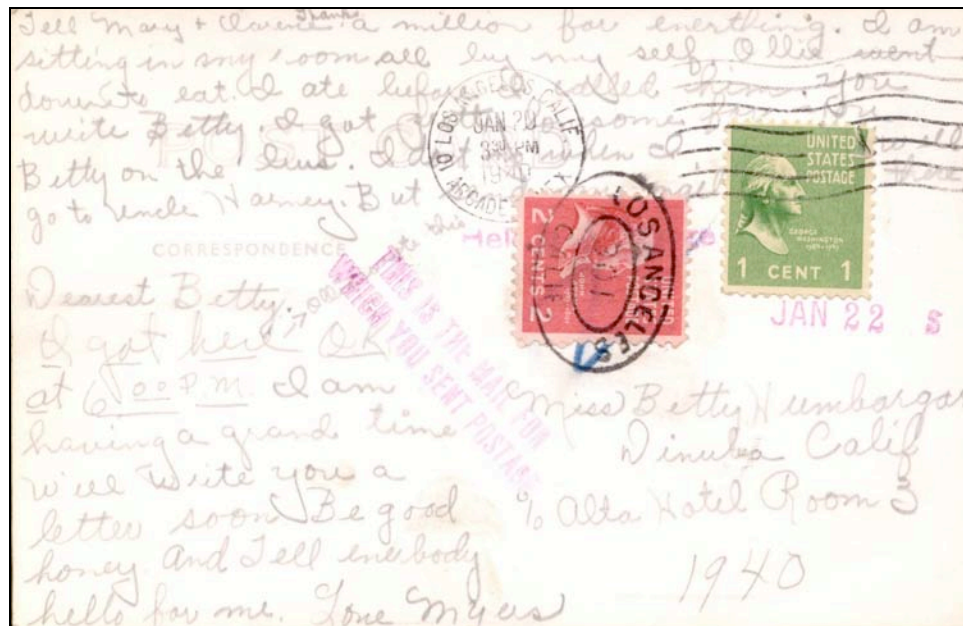 Thanks
Tell Mary + a million for everthing. I am
sitting in my room all by my self. Ollie went
down to eat. I ate before I called them. You
write Betty. I got some
Betty on the bus. I when I
go to uncle Harney. But
LOS ANGELES, CALIF.
JAN 20
PM
1940
ARCADE
UNITED
STATES
POSTAGE
GEORGE
WASHINGTON
1 CENT 1
2 CENTS 2
UNITED
LOS ANGELES
CALIF
CORRESPONDENCE
THIS IS THE MAIL FOR
WHICH YOU SENT POSTAGE
JAN 22 S
Dearest Betty,
I got here OK
at 6:00 P.M. I am
having a grand time
will write you a
letter soon Be good
honey. And Tell everbody
hello for me. Love Myers
Miss Betty Humbargar
Dinuba Calif
% Alta Hotel Room 3
1940